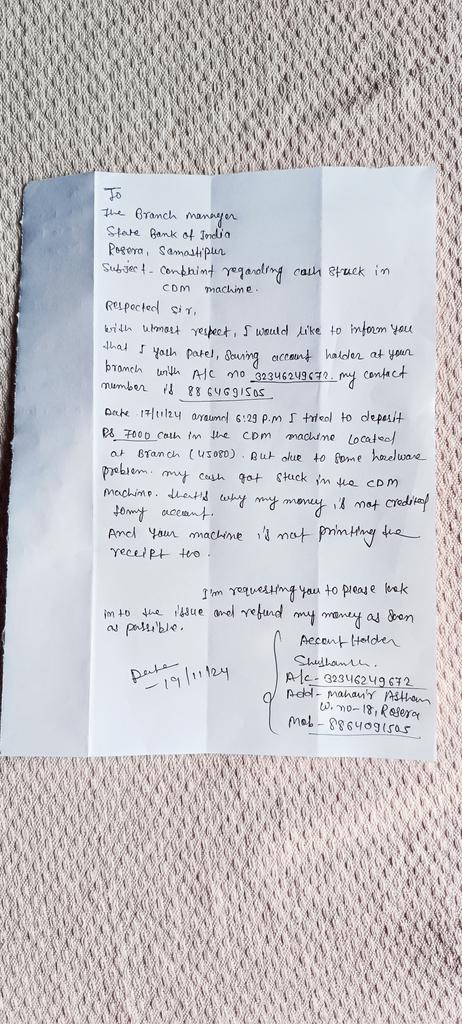 To
The Branch manager
State Bank of India
Rosera, Samastipur
Subject - complaint regarding cash stuck in
CDM machine.
Respected sir,
With utmost respect, I would like to inform you
that I Yash Patel, Saving account holder at your
branch with A/C no 32346249672. my contact
number is 8864691505
Date 17/11/24 around 6:29 P.M I tried to deposit
Rs 7000 cash in the CDM machine located
at Branch (45080). But due to some hardware
problem. my cash got stuck in the CDM
machine. that's why my money is not credited
to my account.
And Your machine is not printing the
receipt too.
I'm requesting you to please look
in to the issue and refund my money as soon
as possible.
Account Holder
Shushanth.
A/c - 32346249672
Add - mahavir Asthan
W. no-18, Rosera
Mob - 8864091505
Date
- 19/11/24